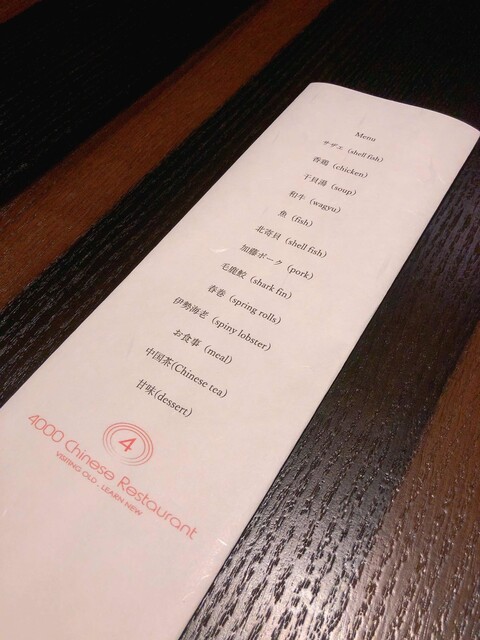 Menu
サザエ（shell fish）
香鶏（chicken）
干貝湯（soup）
和牛（wagyu）
魚（fish）
北寄貝（shell fish）
加藤ポーク（pork）
毛鹿鮫（shark fin）
春巻（spring rolls）
伊勢海老（spiny lobster）
お食事（meal）
中国茶(Chinese tea)
甘味(dessert)
4
4000 Chinese Restaurant
VISITING OLD , LEARN NEW